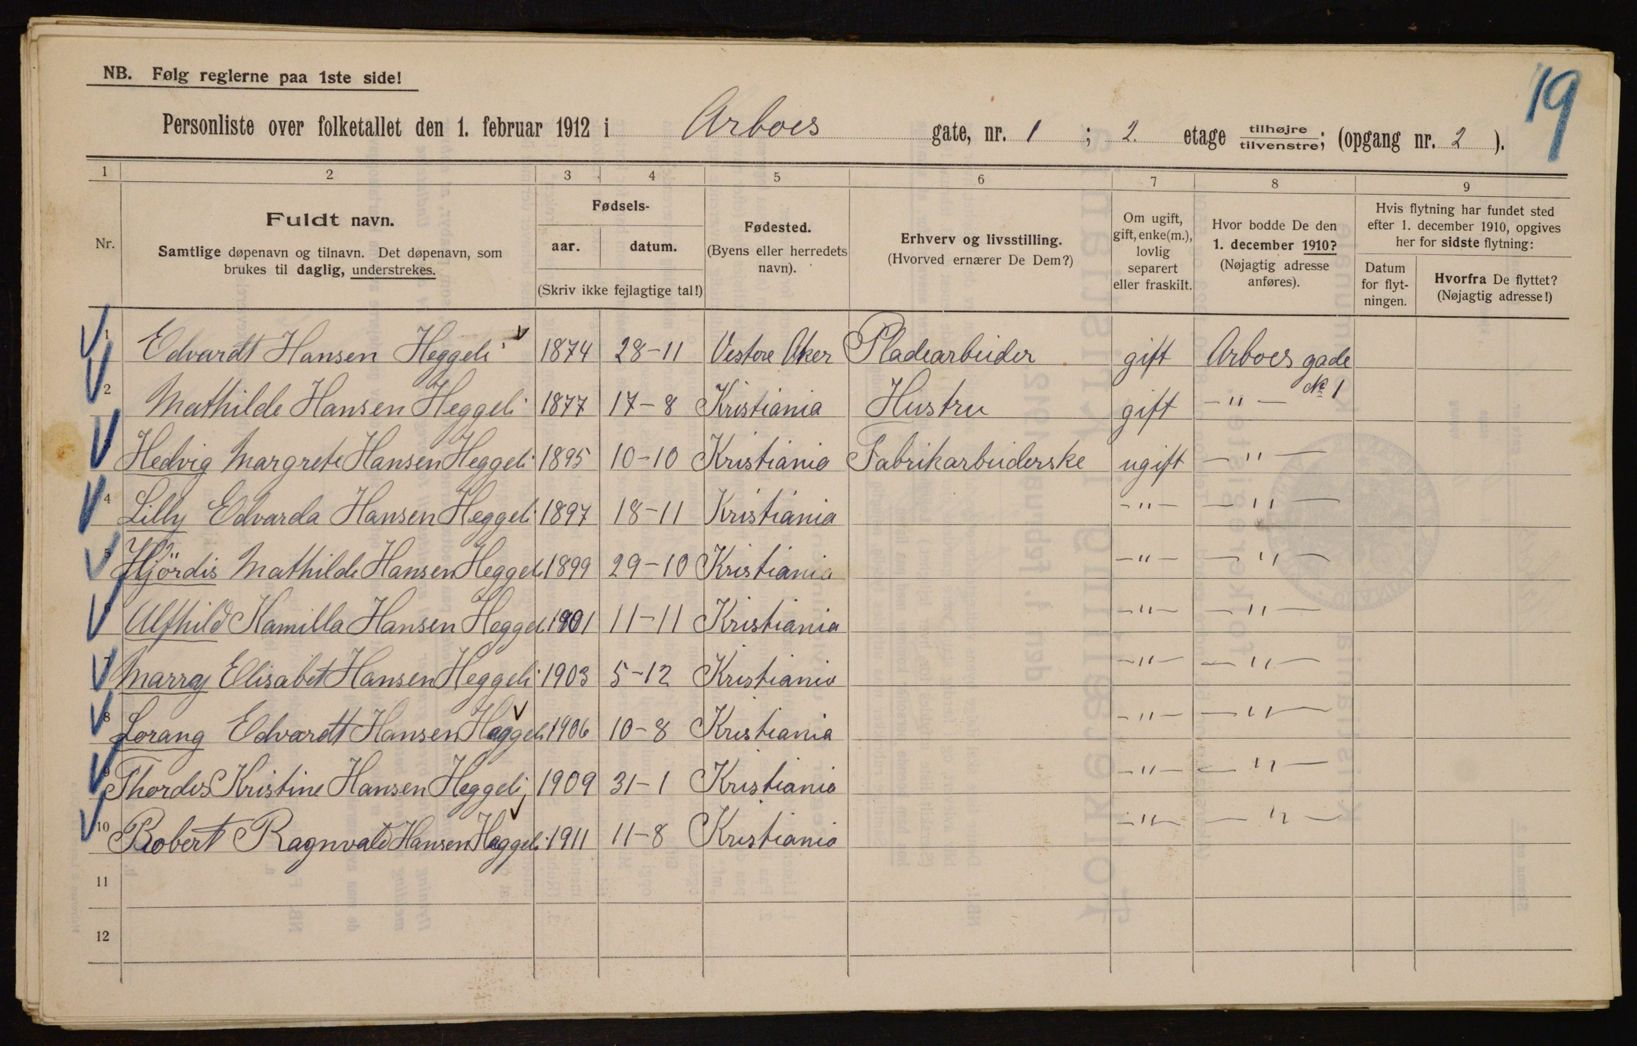 NB. Følg reglerne paa 1ste side!
19
Personliste over folketallet den 1. februar 1912 i Arboes gate, nr. 1 ; 2. etage tilhøjre/tilvenstre; (opgang nr. 2 ).
1 2 3 4 5 6 7 8 9
Nr.
Fuldt navn.
Samtlige døpenavn og tilnavn. Det døpenavn, som
brukes til daglig, understrekes.
Fødsels-
aar. datum.
(Skriv ikke fejlagtige tal!)
Fødested.
(Byens eller herredets
navn).
Erhverv og livsstilling.
(Hvorved ernærer De Dem?)
Om ugift,
gift, enke(m.),
lovlig
separert
eller fraskilt.
Hvor bodde De den
1. december 1910?
(Nøjagtig adresse
anføres).
Hvis flytning har fundet sted
efter 1. december 1910, opgives
her for sidste flytning:
Datum
for flyt-
ningen.
Hvorfra De flyttet?
(Nøjagtig adresse!)
1 Edvardt Hansen Heggeli 1874 28-11 Vestre Aker Pladearbeider gift Arboes gade
№ 1
2 Mathilde Hansen Heggeli 1877 17-8 Kristiania Hustru gift -"-
Hedvig Margrete Hansen Heggeli 1895 10-10 Kristiania Fabrikarbeiderske ugift -"-
4 Lilly Edvarda Hansen Heggeli 1897 18-11 Kristiania -"- -"-
5 Hjördis Mathilde Hansen Heggeli 1899 29-10 Kristiania -"- -"-
Alfhild Kamilla Hansen Heggeli 1901 11-11 Kristiania -"- -"-
7 Marray Elisabet Hansen Heggeli 1903 5-12 Kristiania -"- -"-
8 Lorang Edvardt Hansen Heggeli 1906 10-8 Kristiania -"- -"-
Thordis Kristine Hansen Heggeli 1909 31-1 Kristiania -"- -"-
10 Robert Ragnvald Hansen Heggeli 1911 11-8 Kristiania -"- -"-
11
12